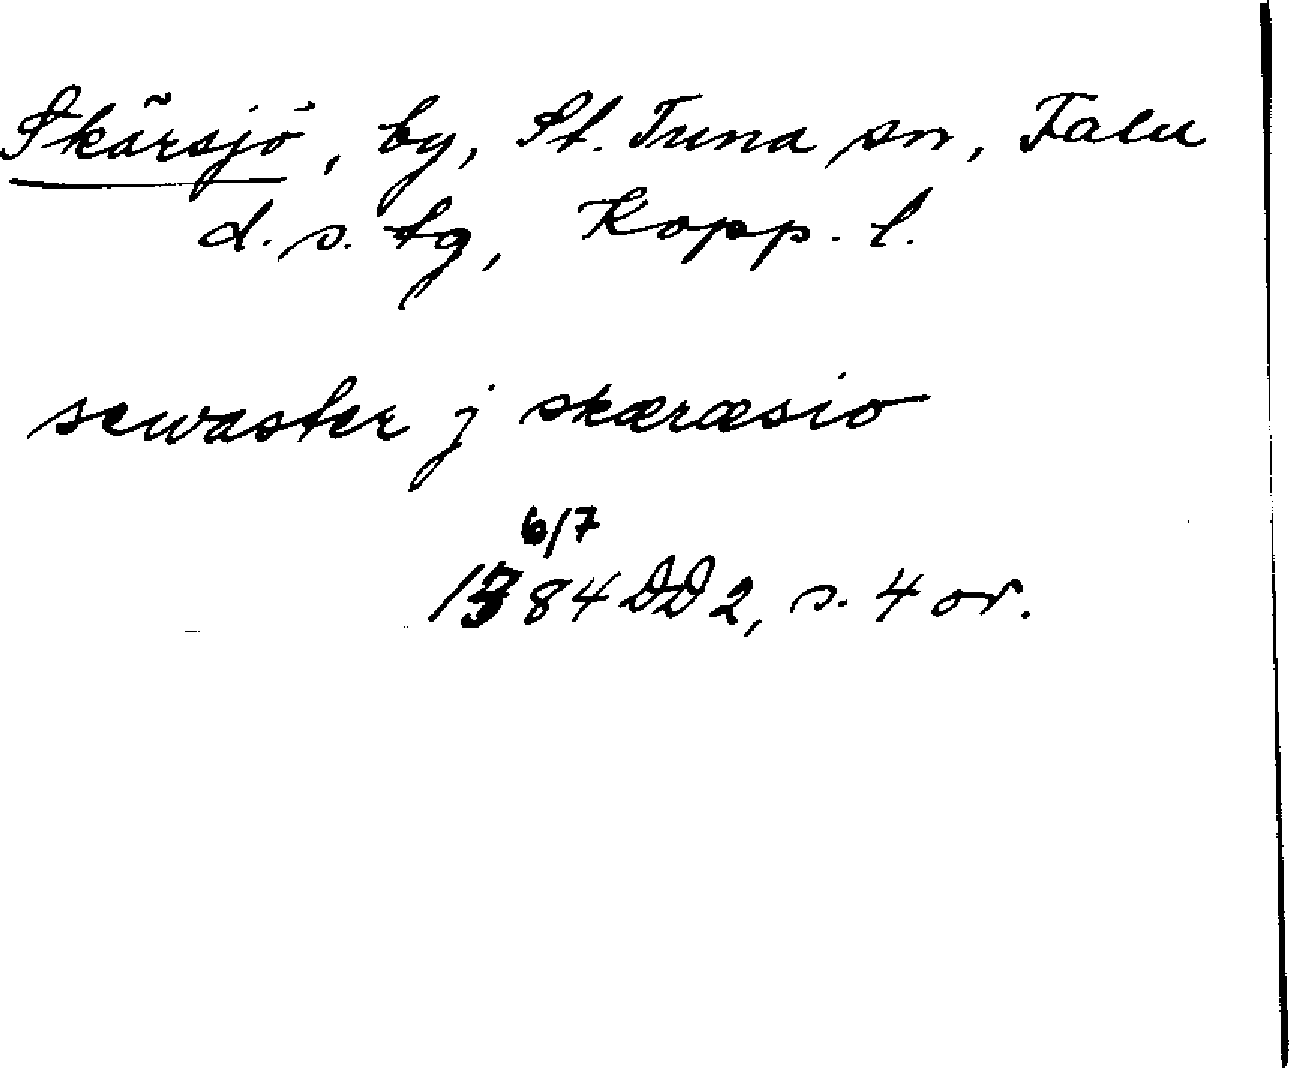 Skärsjö, by, St. Tuna sn, Falu
d. s. tg, Kopp. l.
sewaster j skæræsio
6/7
1384 DD 2, s. 4 or.